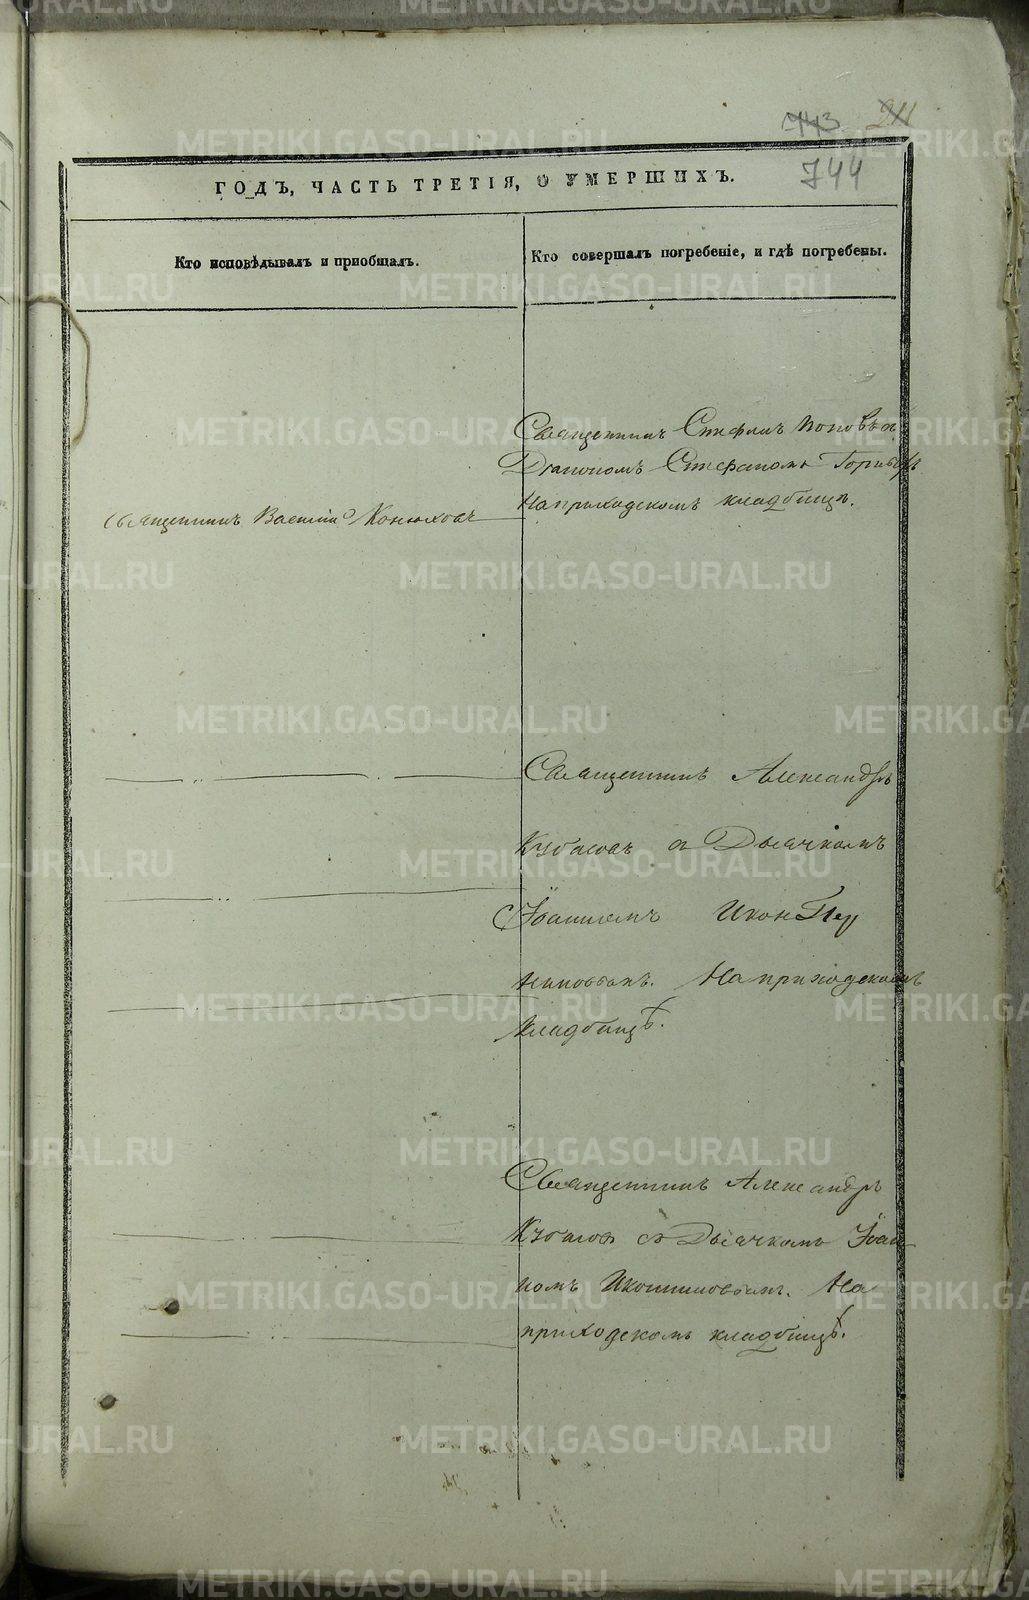 743 211
744
ГОДЪ, ЧАСТЬ ТРЕТІЯ, О УМЕРШИХЪ.
Кто исповѣдывалъ и приобщалъ.
Кто совершалъ погребеніе, и гдѣ погребены.
Священникъ Василій Конюховъ
Священникъ Стефанъ Поповъ съ
Діакономъ Стефаномъ
На приходскомъ кладбищѣ.
Священникъ Александръ
Кубасовъ съ Дьячкомъ
Іоанномъ
На приходскомъ
кладбищѣ.
Священникъ Александръ
Кубасовъ съ Дьячкомъ Іоан
номъ На
приходскомъ кладбищѣ.
METRIKI.GASO-URAL.RU